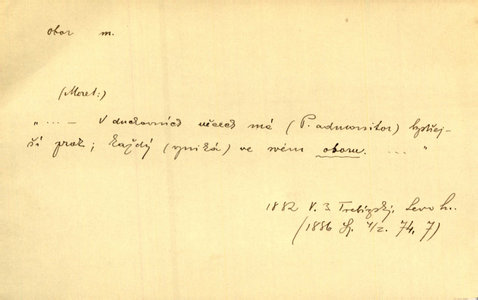 obor m.
(Moret:)
„ ... — V duchovních věcech má (P. admonitor) bystřej-
ší zrak; každý (vyniká) ve svém oboru. ... "
1882 V. B. Třebízský, Levoh.
(1886 Sp. 74, 7)